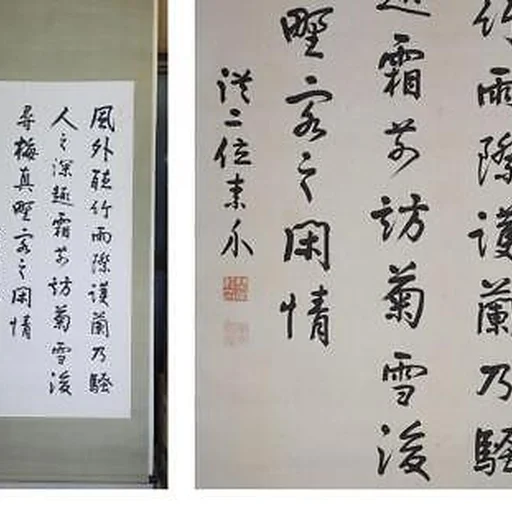 風外聴竹雨際護蘭乃騒
人之深趣霜前訪菊雪後
尋梅真野客之閑情
竹雨際護蘭乃騒
趣霜前訪菊雪後
野客之閑情
従二位素